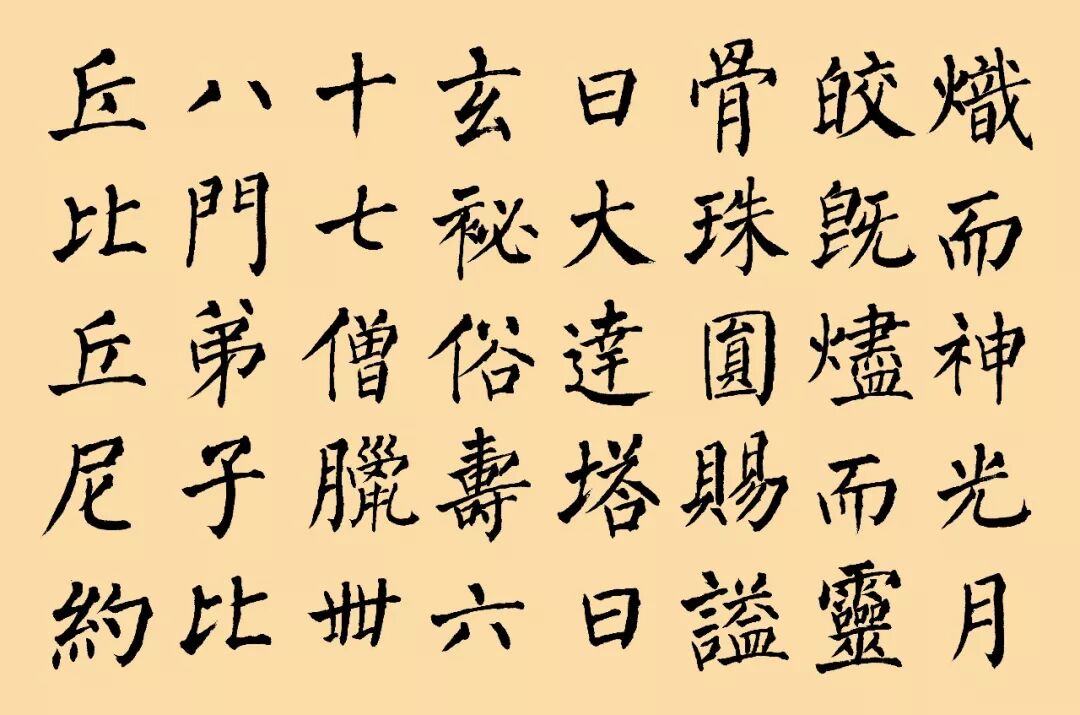 熾而神光月
皎既燼而靈
骨珠圓賜謚
曰大達塔曰
玄祕俗壽六
十七僧臘卌
八門弟子比
丘比丘尼約